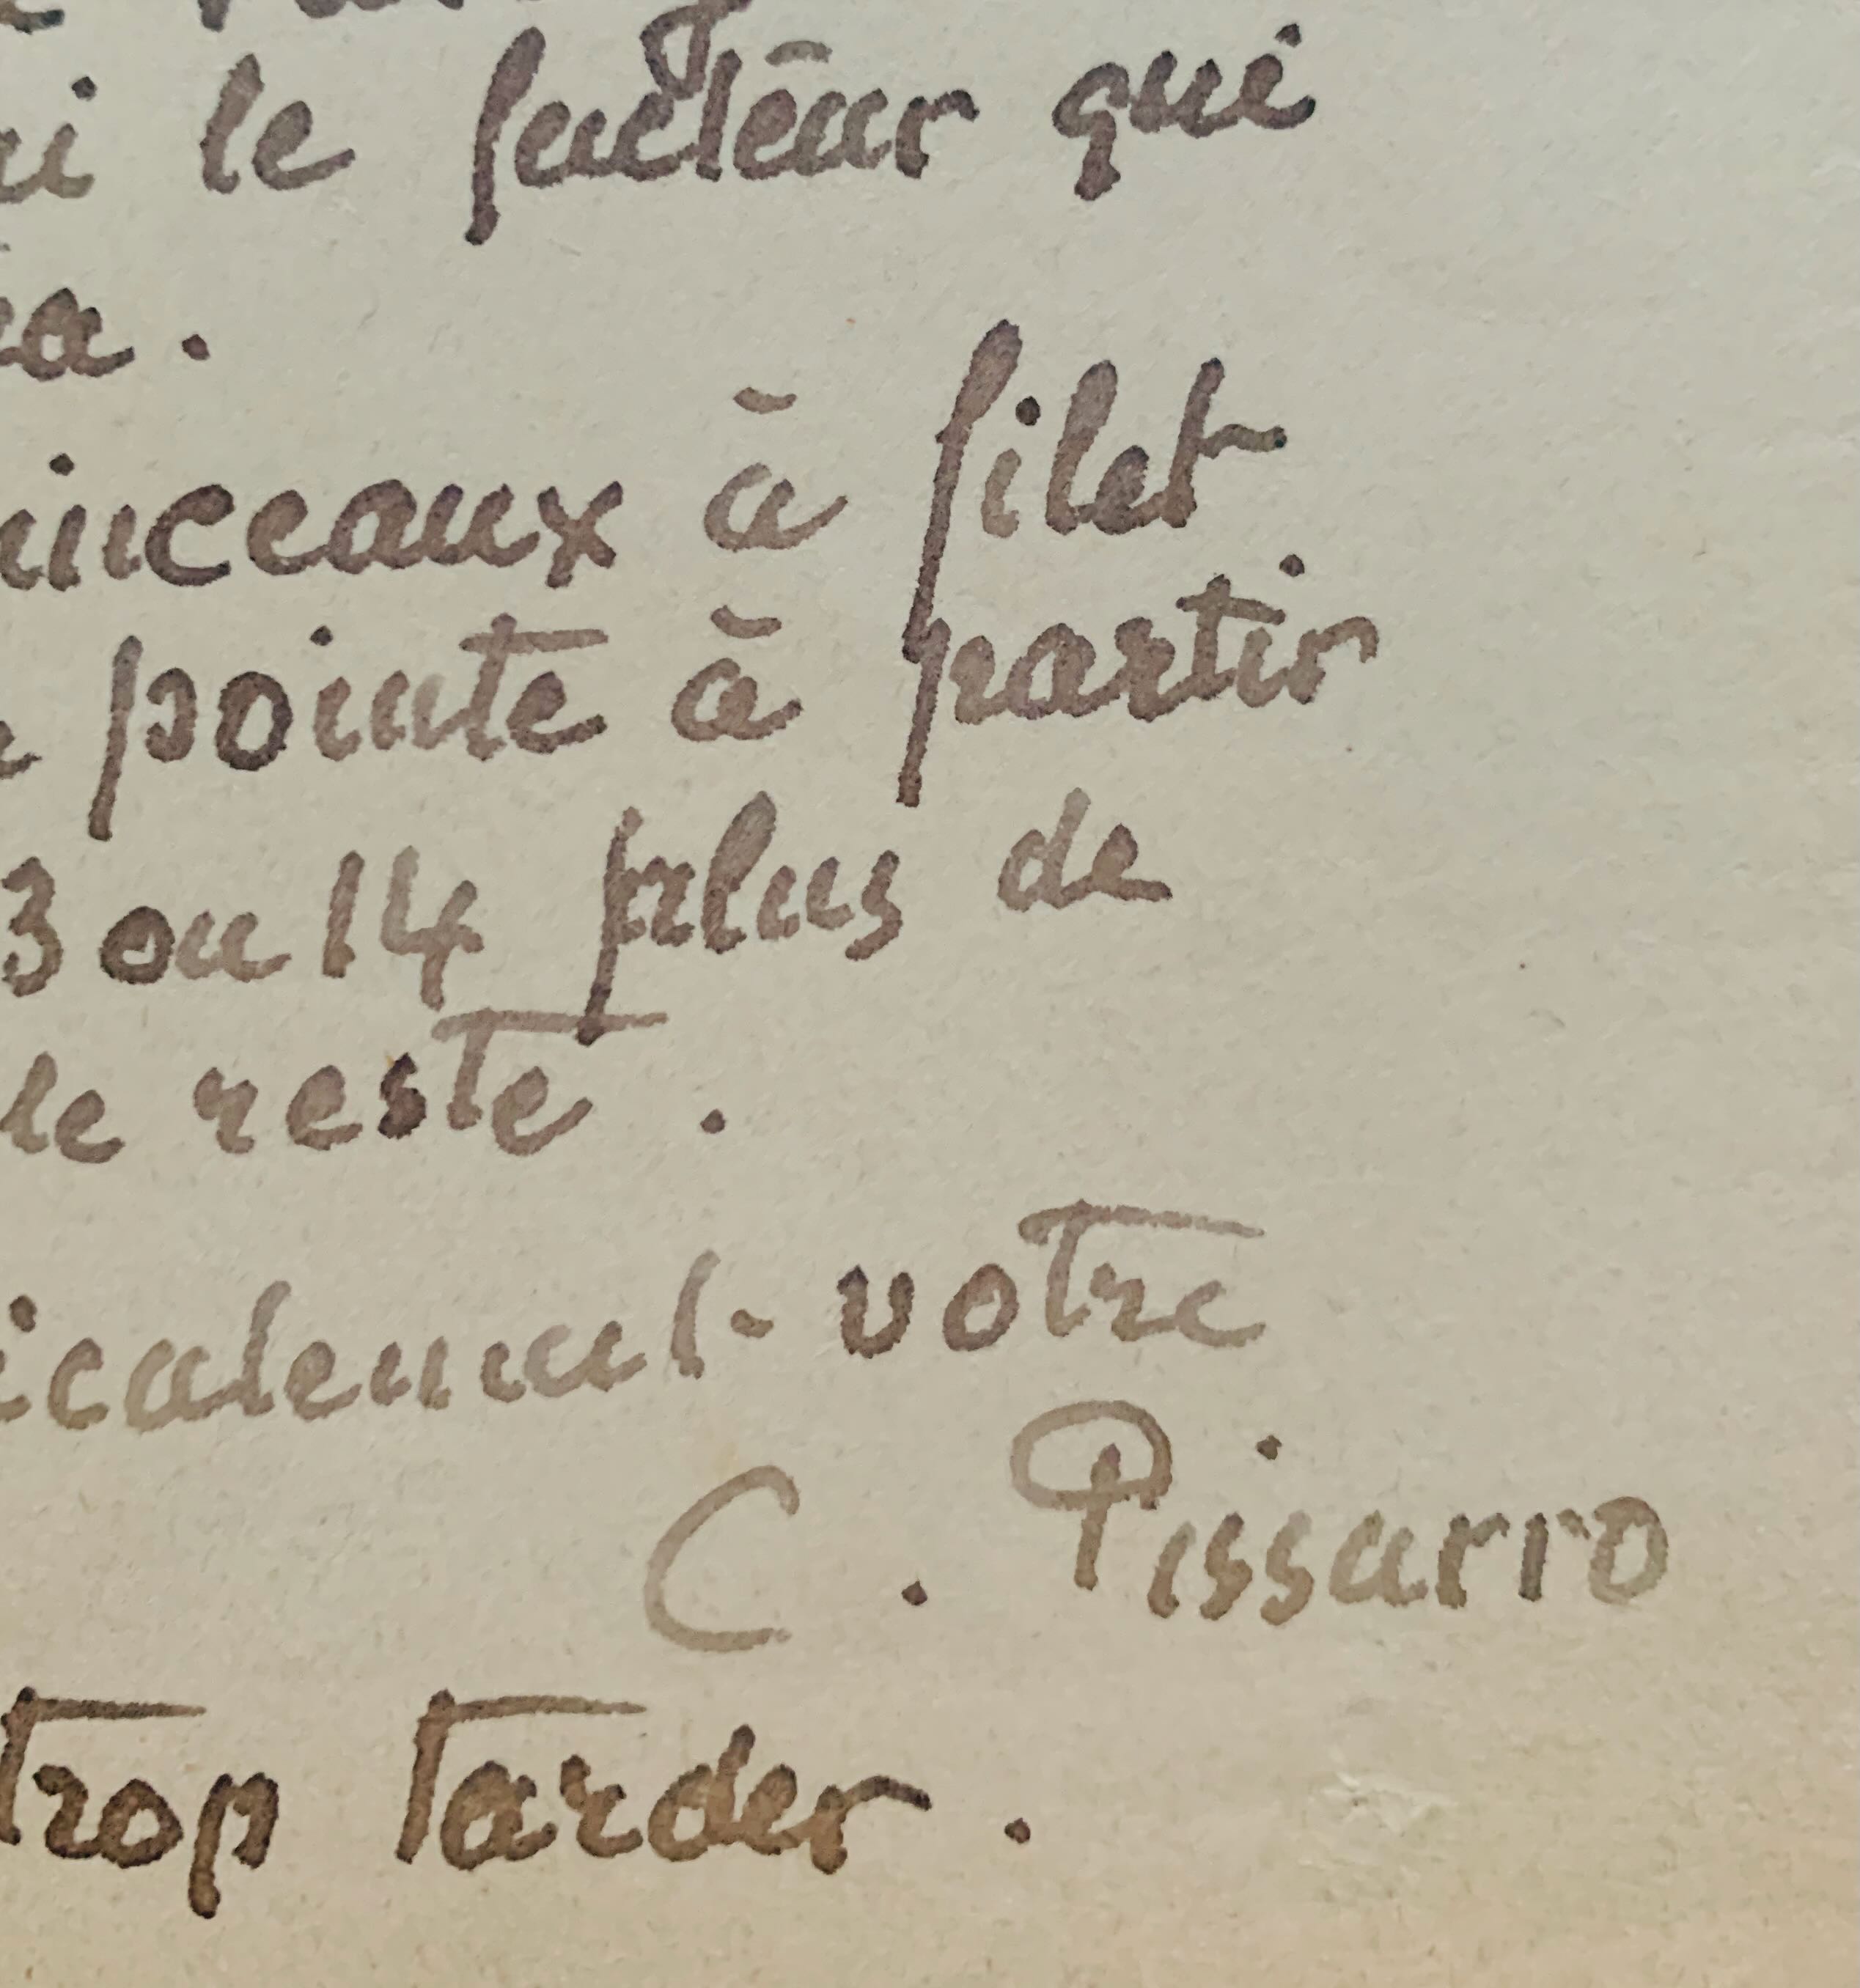 le facteur qui
à filet
pointe à partir
3 ou 14 plus de
le reste .
votre
C. Pissarro
trop tarder .